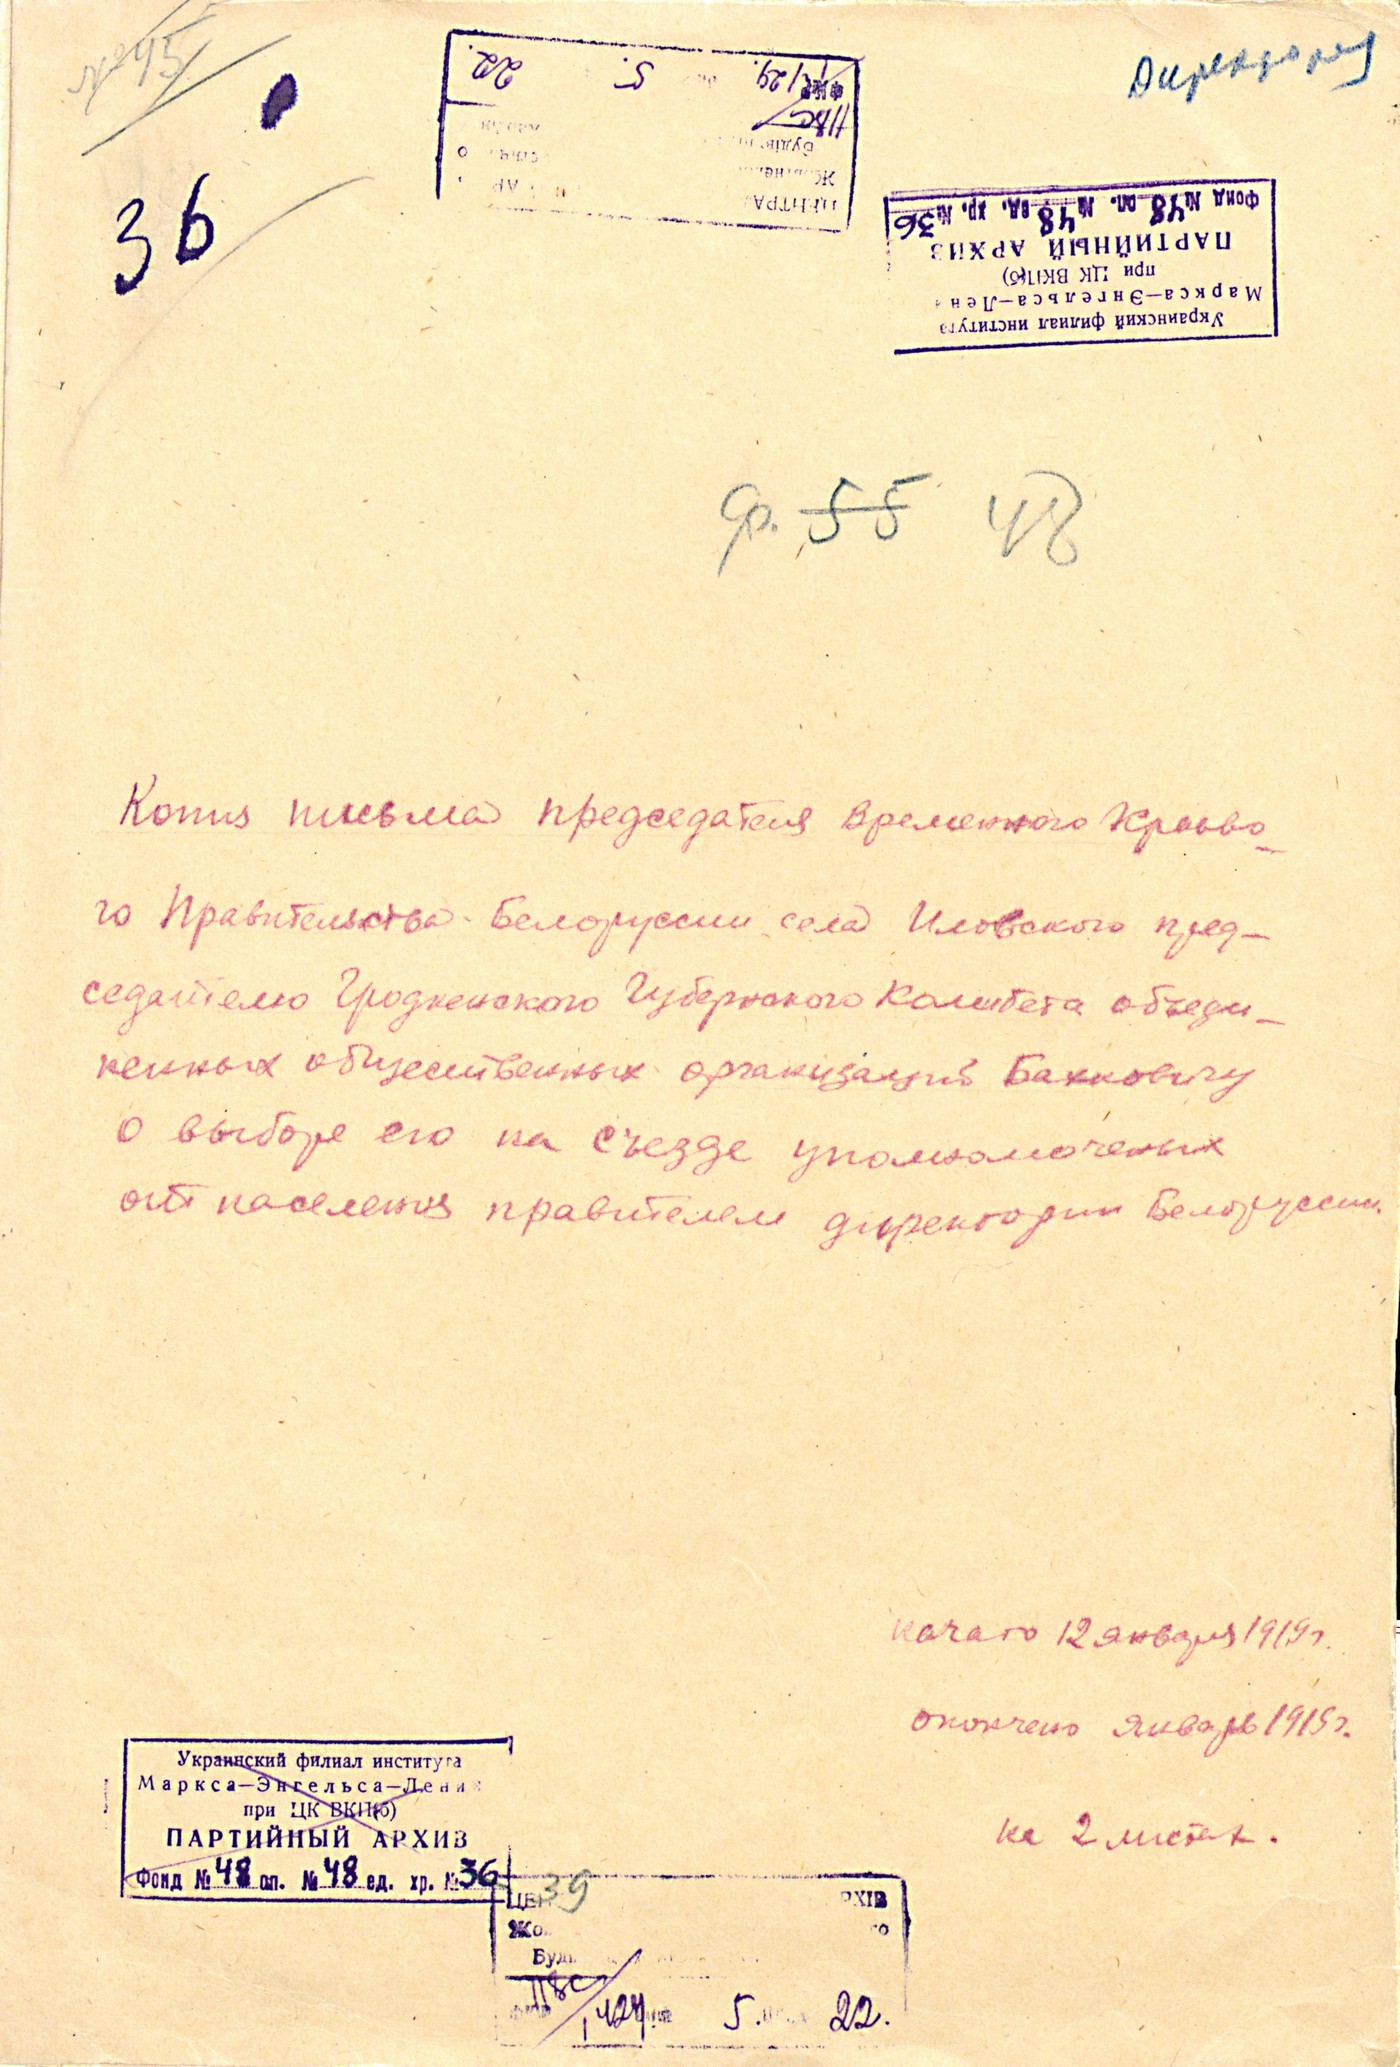 № 45
36
22. 5.
Директория
Украинский филиал института
Маркса—Энгельса—Лени
при ЦК ВКП(б)
ПАРТИЙНЫЙ АРХИВ
Фонд № 48 оп. № 48 ед. хр. № 36
ф. 55 48
Копия письма председателя Временного Краево-
го Правительства Белоруссии села Иловского пред-
седателю Гродненского Губернского Комитета объеди-
ненных общественных организаций Банковичу
о выборе его на съезде уполномоченых
от населения правителем директории Белоруссии.
начато 12 января 1919 г.
окончено январь 1919 г.
на 2 листах.
Украинский филиал института
Маркса—Энгельса—Лени
при ЦК ВКП(б)
ПАРТИЙНЫЙ АРХИВ
Фонд № 48 оп. № 48 ед. хр. № 36
39
5. 22.